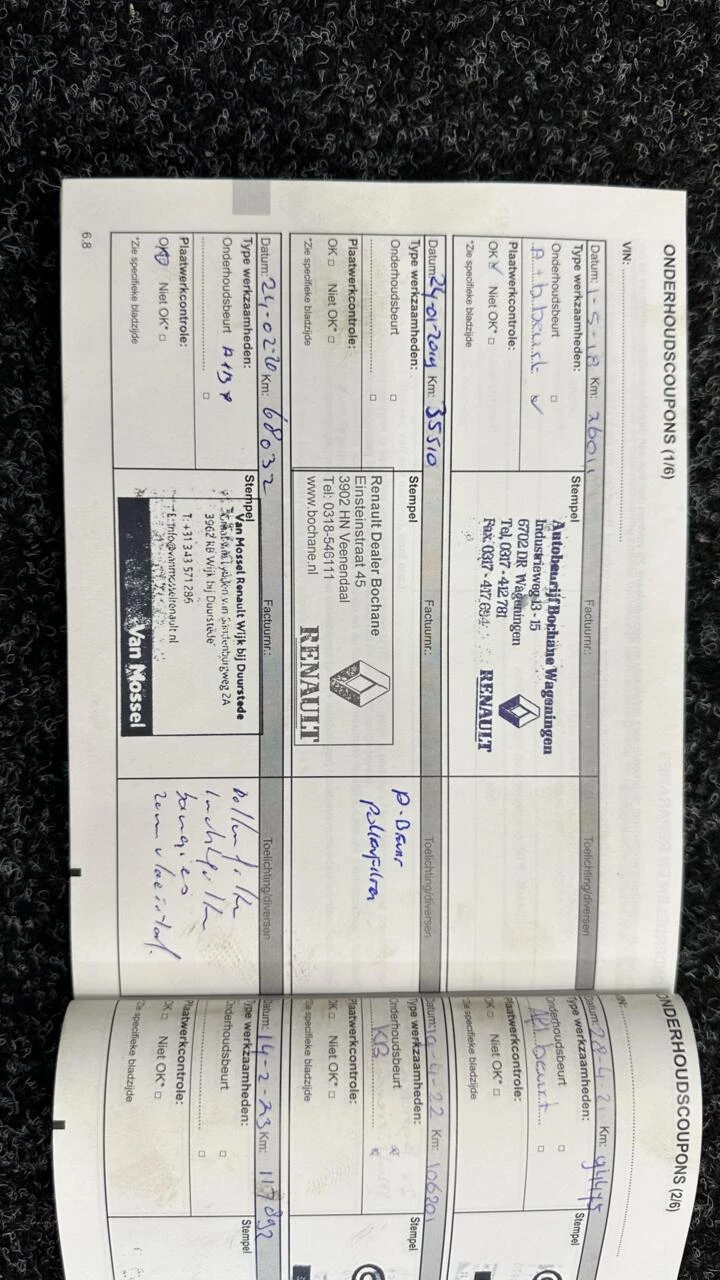 ONDERHOUDSCOUPONS (1/6)
VIN:
Datum: 1-5-18 Km: 26011
Type werkzaamheden:
Onderhoudsbeurt □
A + b beurt
Plaatwerkcontrole:
OK Niet OK* □
*Zie specifieke bladzijde
Factuurnr.:
Stempel
Autobedrijf Bochane Wageningen
Industrieweg 13 - 15
6702 DR Wageningen
Tel. 0317 - 412 781
Fax: 0317 - 417 694
RENAULT
Toelichting/diversen
Datum: 24-01-2019 Km: 35510
Type werkzaamheden:
Onderhoudsbeurt □
□
Plaatwerkcontrole:
OK □ Niet OK* □
*Zie specifieke bladzijde
Factuurnr.:
Stempel
Renault Dealer Bochane
Einsteinstraat 45
3902 HN Veenendaal
Tel: 0318-546111
www.bochane.nl
RENAULT
Toelichting/diversen
Pollenfilter
Datum: 24-02-20 Km: 68032
Type werkzaamheden:
Onderhoudsbeurt A+B
□
Plaatwerkcontrole:
OK Niet OK* □
*Zie specifieke bladzijde
Factuurnr.:
Stempel
Van Mossel Renault Wijk bij Duurstede
3962 RB Wijk bij Duurstede
T: +31 343 571 286
E: info@vanmosselrenault.nl
Van Mossel
Toelichting/diversen
Pollenfilter
Luchtfilter
bougies
remvloeistof.
6.8
ONDERHOUDSCOUPONS (2/6)
Datum: 28-4-21 Km: 94475
Type werkzaamheden:
Onderhoudsbeurt □
beurt □
Plaatwerkcontrole:
OK □ Niet OK* □
*Zie specifieke bladzijde
Stempel
Datum: Km: 106201
Type werkzaamheden:
Onderhoudsbeurt
KB
Plaatwerkcontrole:
OK □ Niet OK* □
*Zie specifieke bladzijde
Stempel
Datum: 14-2-23 Km: 117892
Type werkzaamheden:
Onderhoudsbeurt □
□
Plaatwerkcontrole:
OK □ Niet OK* □
*Zie specifieke bladzijde
Stempel